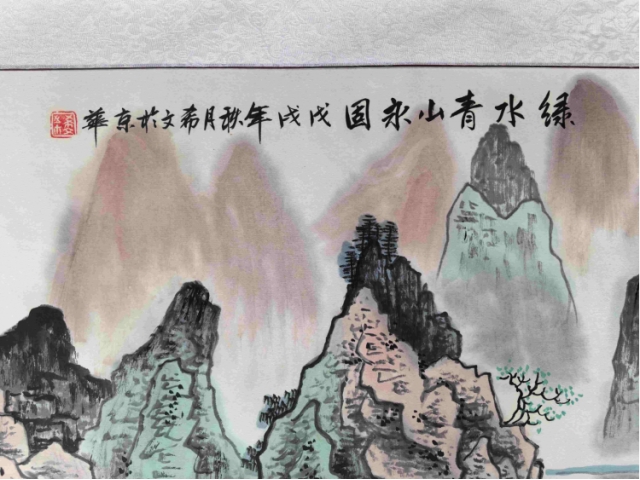 绿水青山永固 戊戌年秋月希文於京華